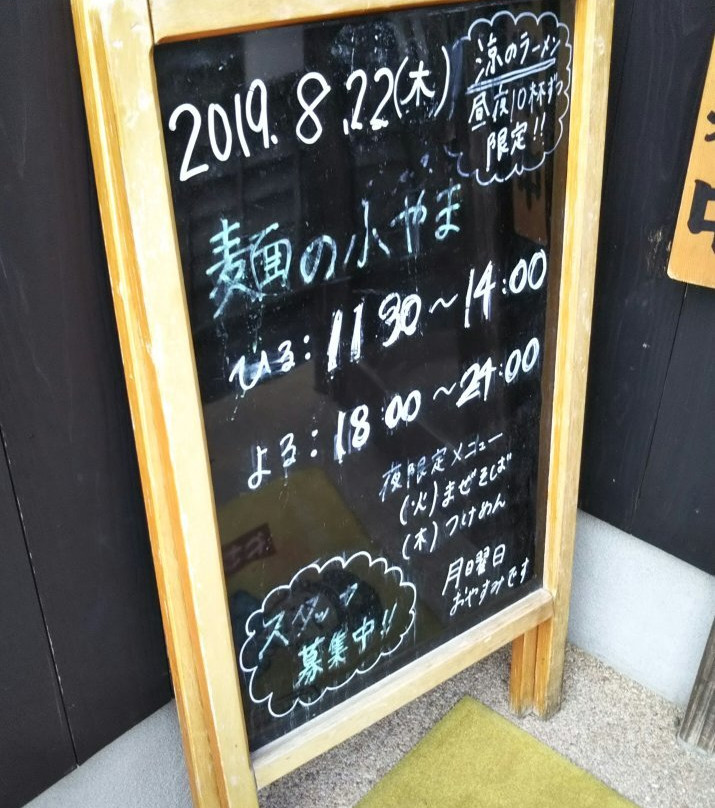 2019.8.22(木)
涼のラーメン
昼夜10杯ずつ
限定!!
麺の小やま
ひる:11:30〜14:00
よる:18:00〜24:00
夜限定メニュー
(火)まぜそば
(木)つけめん
月曜日
おやすみです
スタッフ
募集中!!